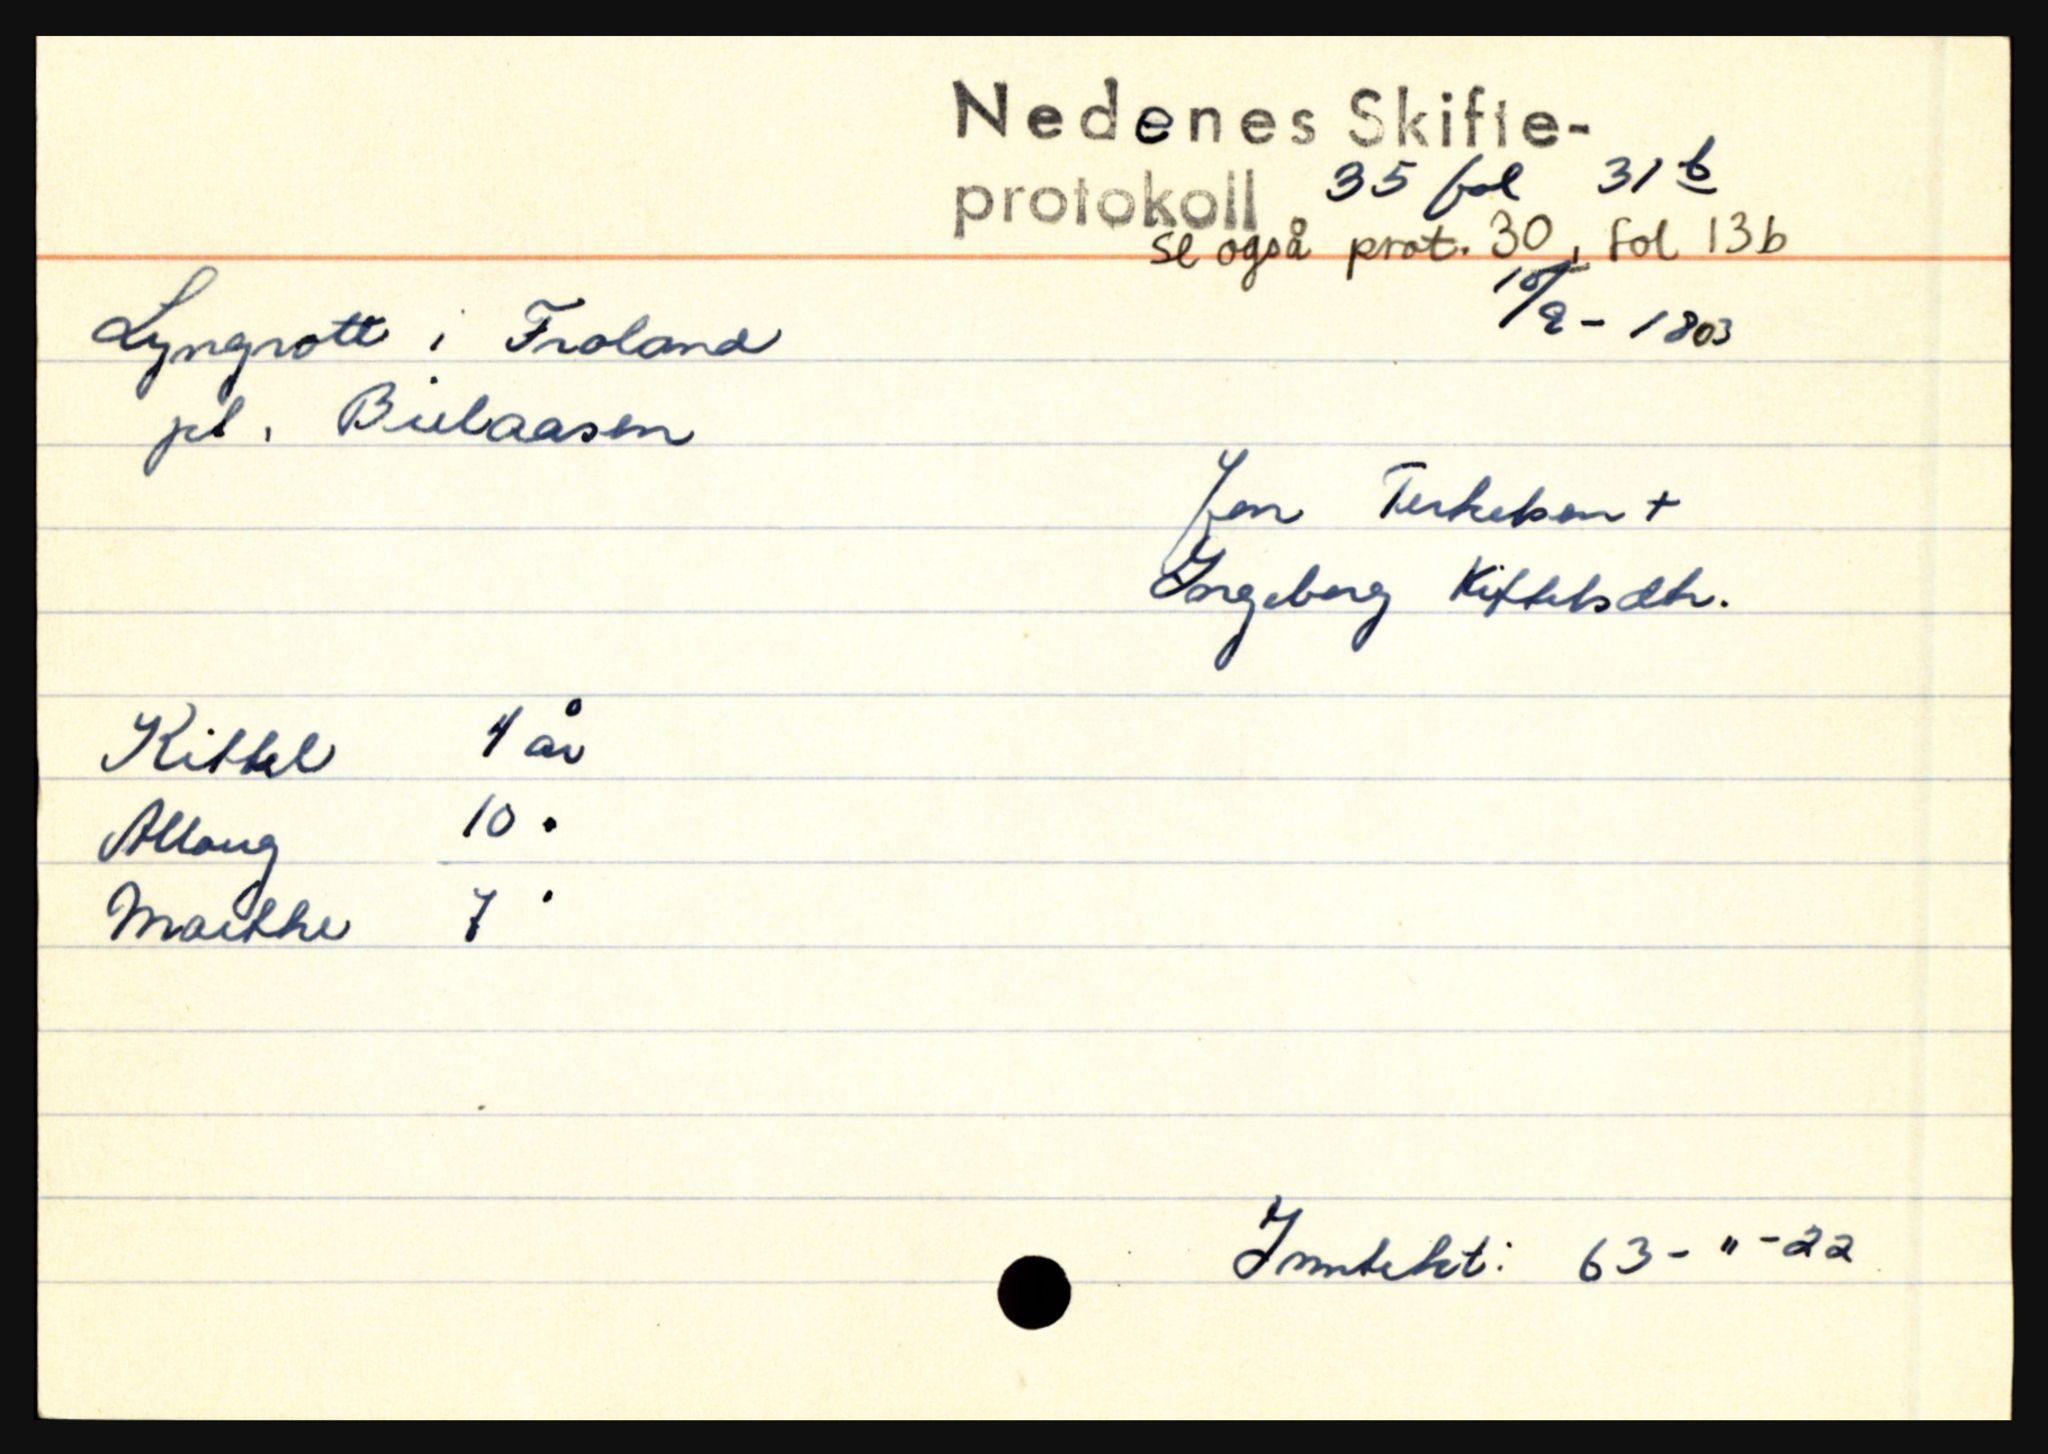 Nedenes Skifte-
protokoll 35 fol 31 b
se også prot. 30, fol 13b
10/2 - 1803
Lyngrott i Froland
pl. Bielaasen
Jon Terkelsen +
Ingeborg Kittelsdtr.
Kittel 4 år
Alloug 10 "
Marthe 7 "
Inntekt: 63 - " - 22